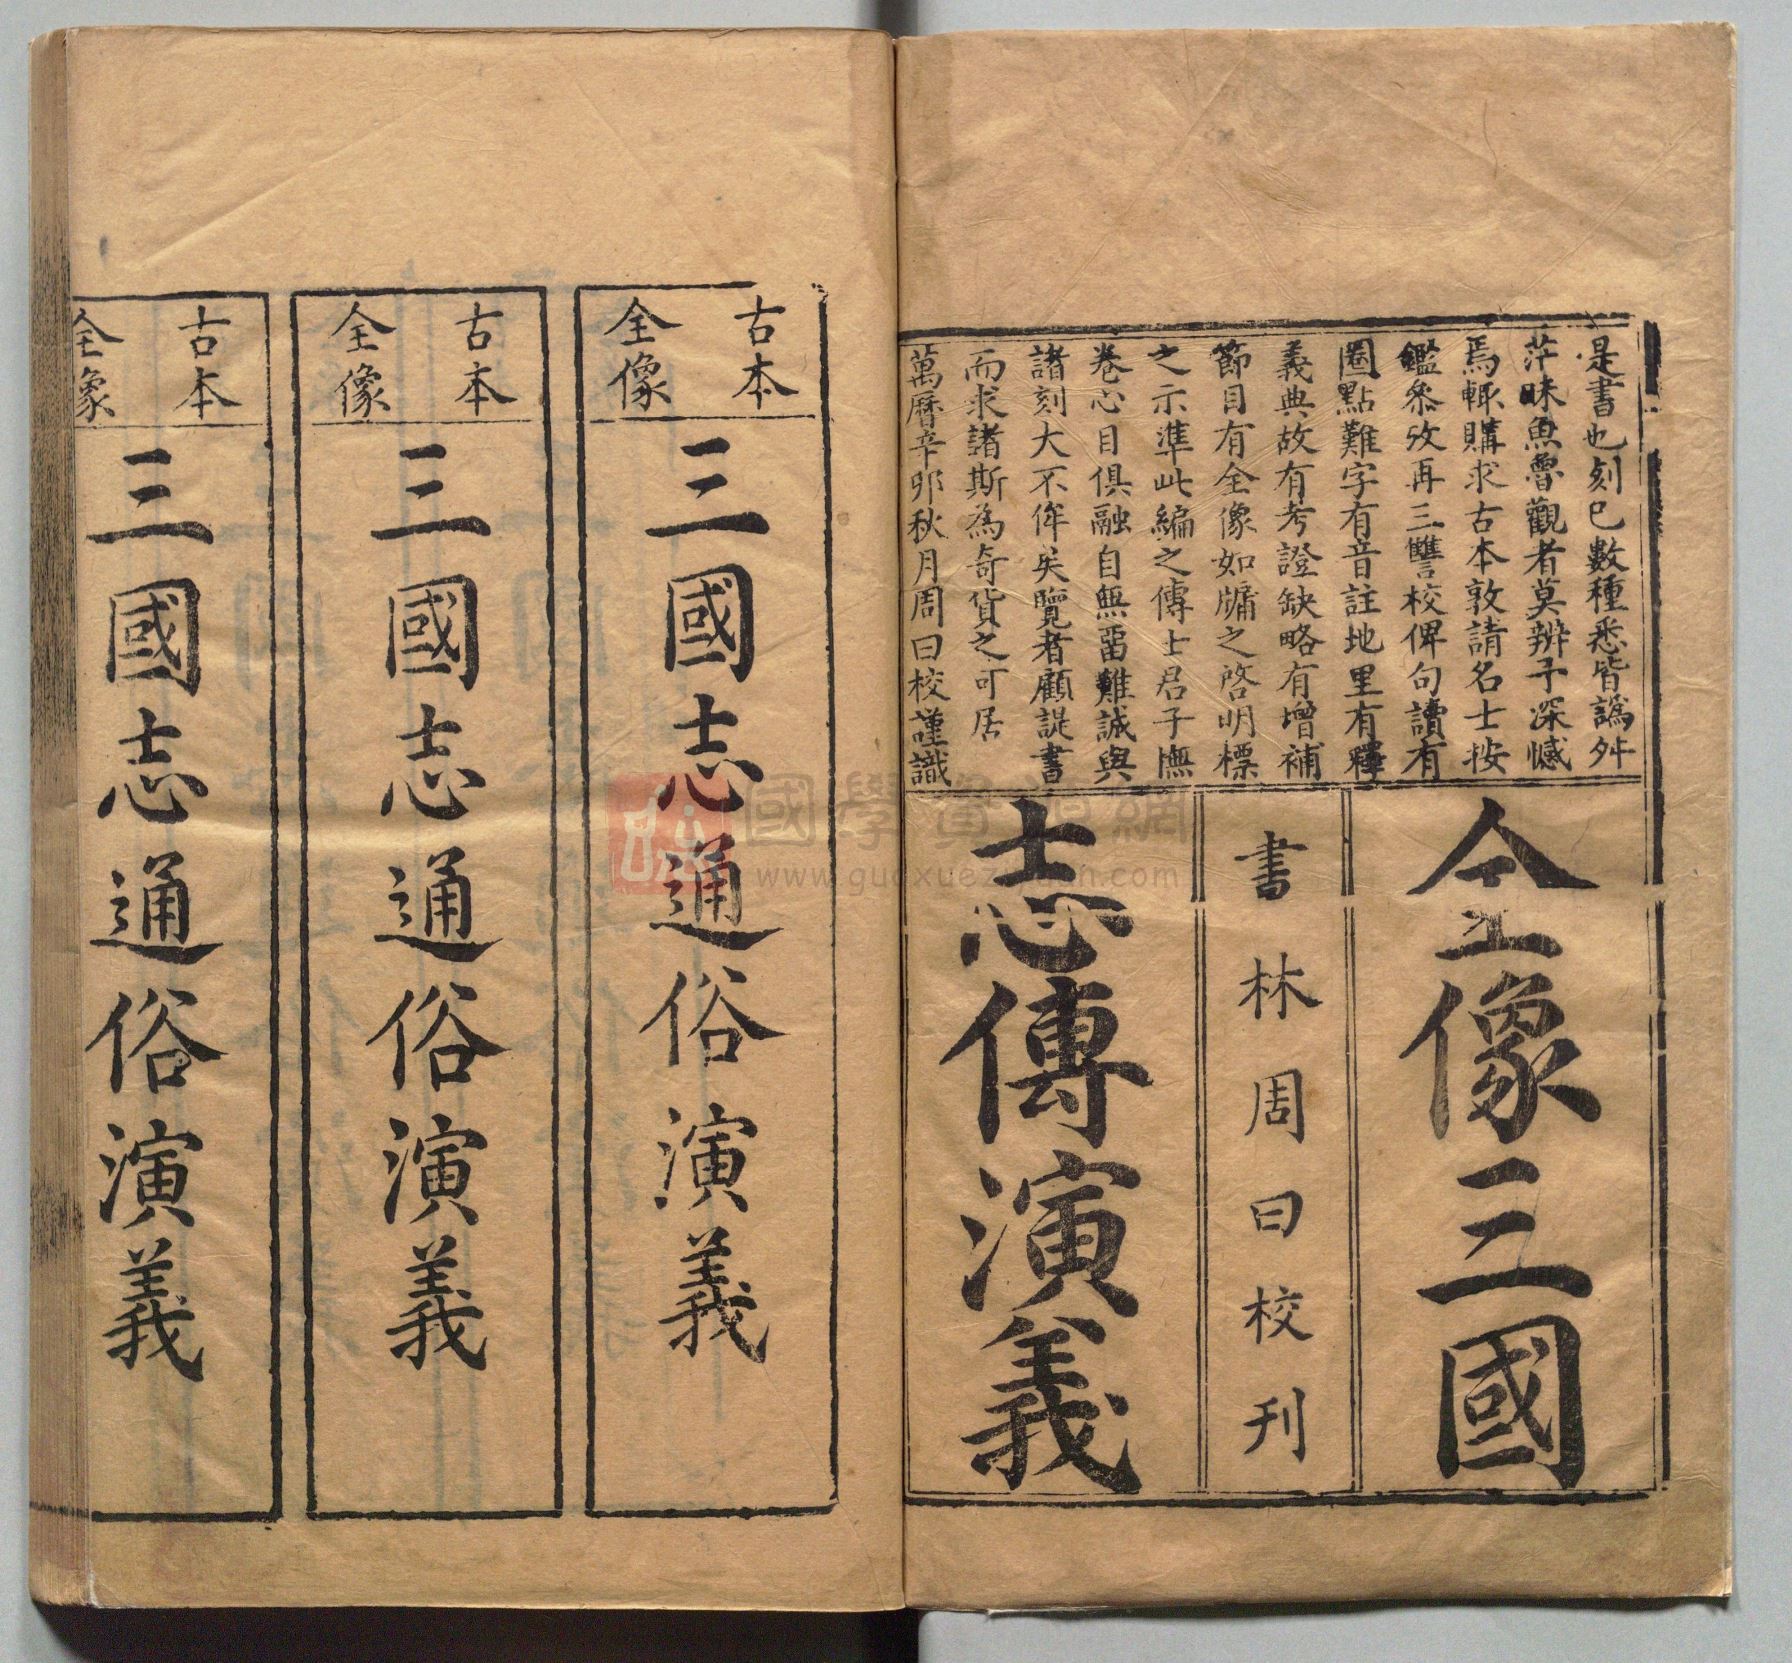 是書也刻已數種悉皆譌舛
茫昧魚魯觀者莫辨予深憾
焉輒購求古本敦請名士按
鑑參攷再三讐校俾句讀有
圈點難字有音註地里有釋
義典故有考證缺略有增補
節目有全像如牖之啓明標
之示準此編之傳士君子撫
卷心目俱融自無留難誠與
諸刻大不侔矣覽者顧諟書
而求諸斯為奇貨之可居
萬曆辛卯秋月周曰校謹識
全像三國
書林周曰校刊
志傳演義
古本
全像
三國志通俗演義
古本
全像
三國志通俗演義
古本
全像
三國志通俗演義
國學資源網
www.guoxueziyuan.com